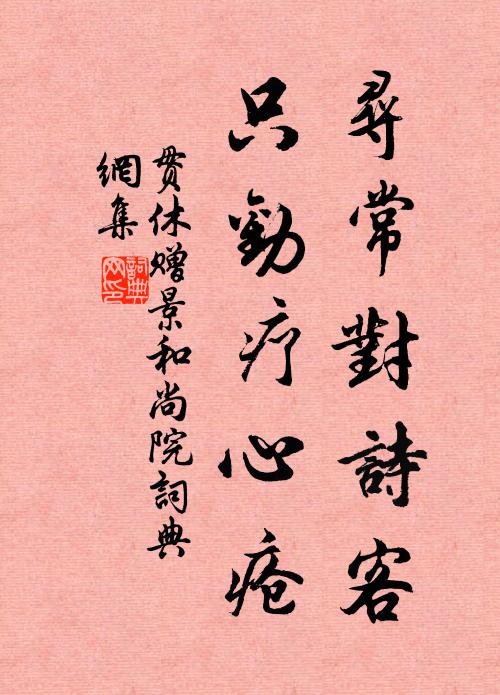 尋常對詩客
只勸疗心瘡
貫休赠景和尚院詞典
網集
詞典
网印